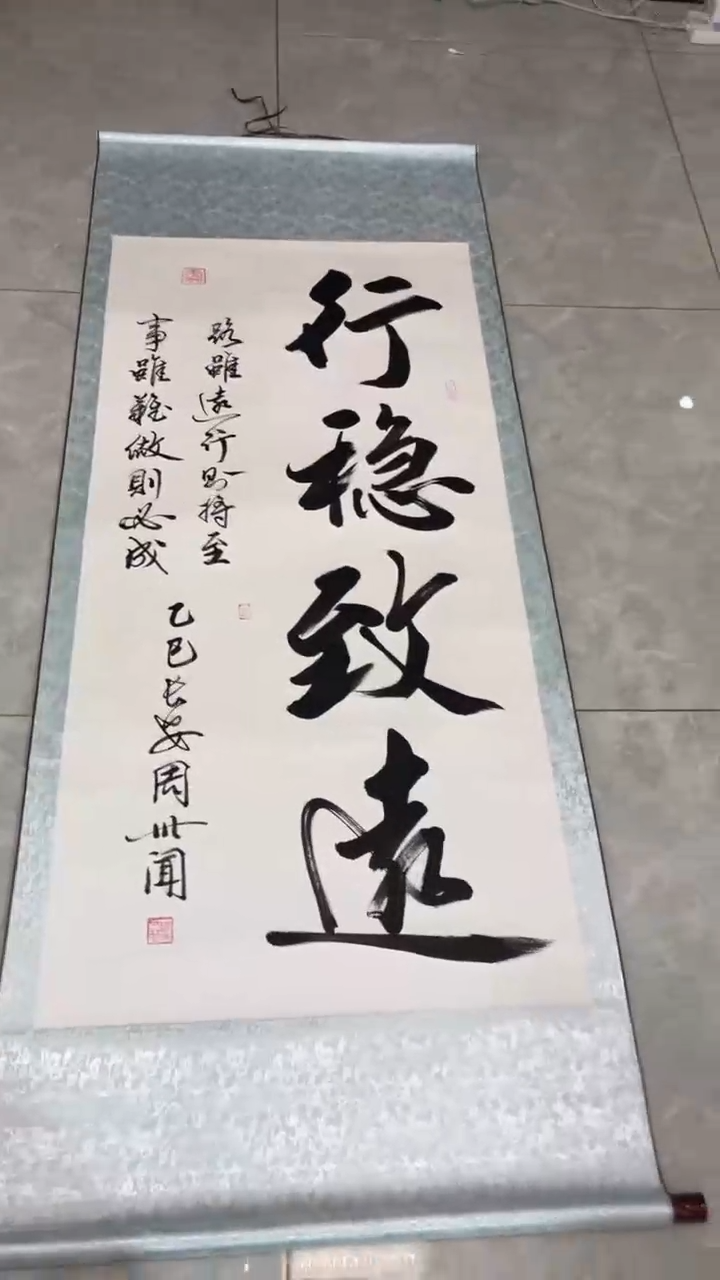 行稳致遠
路雖遠行則将至
事雖難做則必成
乙巳长安周世闻